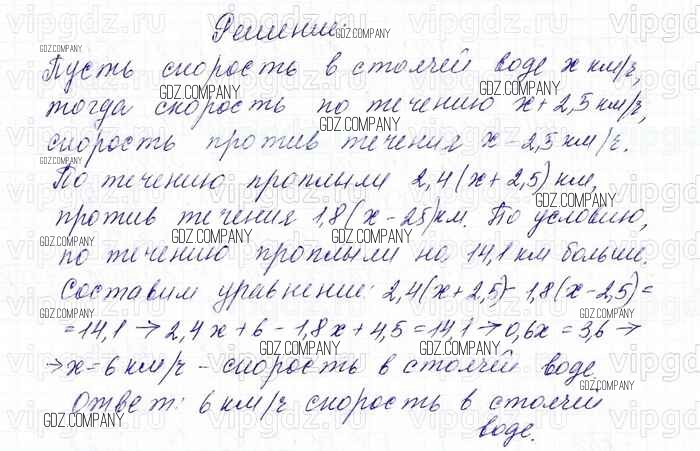 Решение:
Пусть скорость в стоячей воде x км/ч,
тогда скорость по течению x + 2,5 км/ч,
скорость против течения x - 2,5 км/ч.
По течению проплыли 2,4(x + 2,5) км,
против течения 1,8(x - 25) км. По условию,
по течению проплыли на 14,1 км больше.
Составим уравнение: 2,4(x + 2,5) - 1,8(x - 2,5) =
= 14,1 → 2,4x + 6 - 1,8x + 4,5 = 14,1 → 0,6x = 3,6 →
→ x = 6 км/ч - скорость в стоячей воде.
Ответ: 6 км/ч скорость в стоячей
воде.